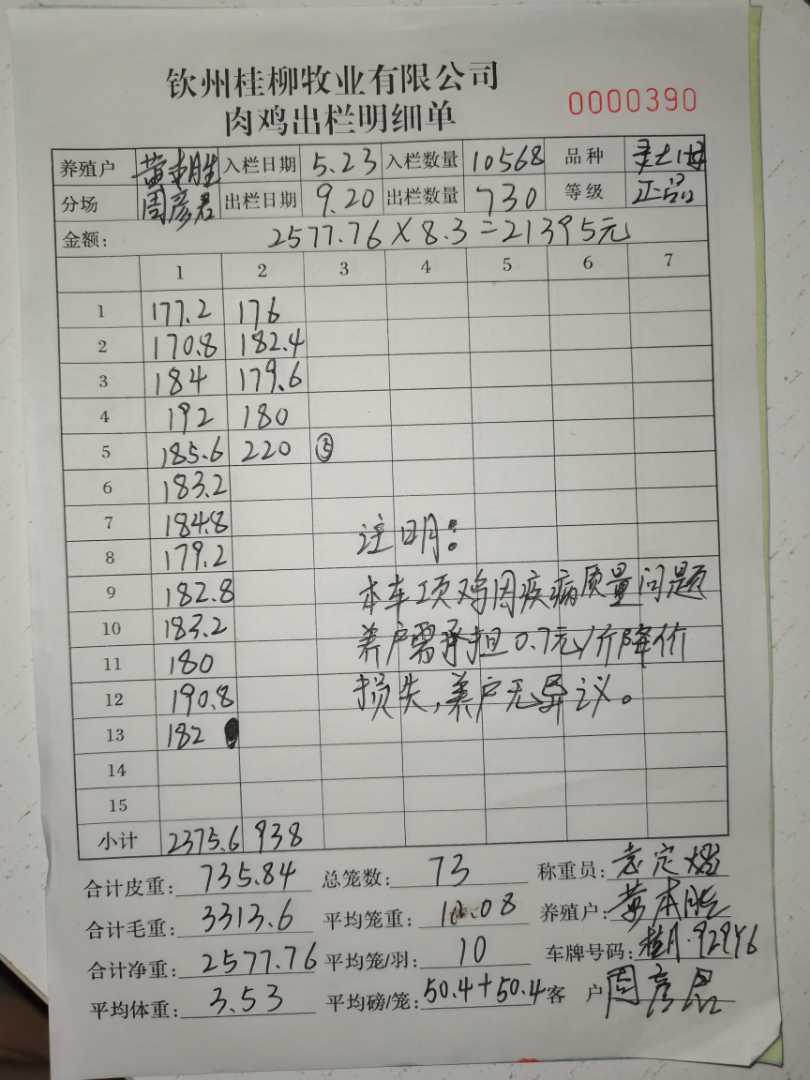 钦州桂柳牧业有限公司
肉鸡出栏明细单
0000390
养殖户 黄本胜 入栏日期 5.23 入栏数量 10568 品种
分场 周彦君 出栏日期 9.20 出栏数量 730 等级 正品
金额: 2577.76×8.3=21395元
1 2 3 4 5 6 7
1 177.2 176
2 170.8 182.4
3 184 179.6
4 192 180
5 185.6 220 ⑤
6 183.2
7 184.8
8 179.2
9 182.8
10 183.2
11 180
12 190.8
13 182
14
15
注明:
本车项鸡因疾病质量问题
养户需承担0.7元/斤降价
损失,养户无异议。
小计 2375.6 938
合计皮重: 735.84 总笼数: 73 称重员:
合计毛重: 3313.6 平均笼重: 10.08 养殖户: 黄本胜
合计净重: 2577.76 平均笼/羽: 10 车牌号码:
平均体重: 3.53 平均磅/笼: 50.4+50.4 客户 周彦君